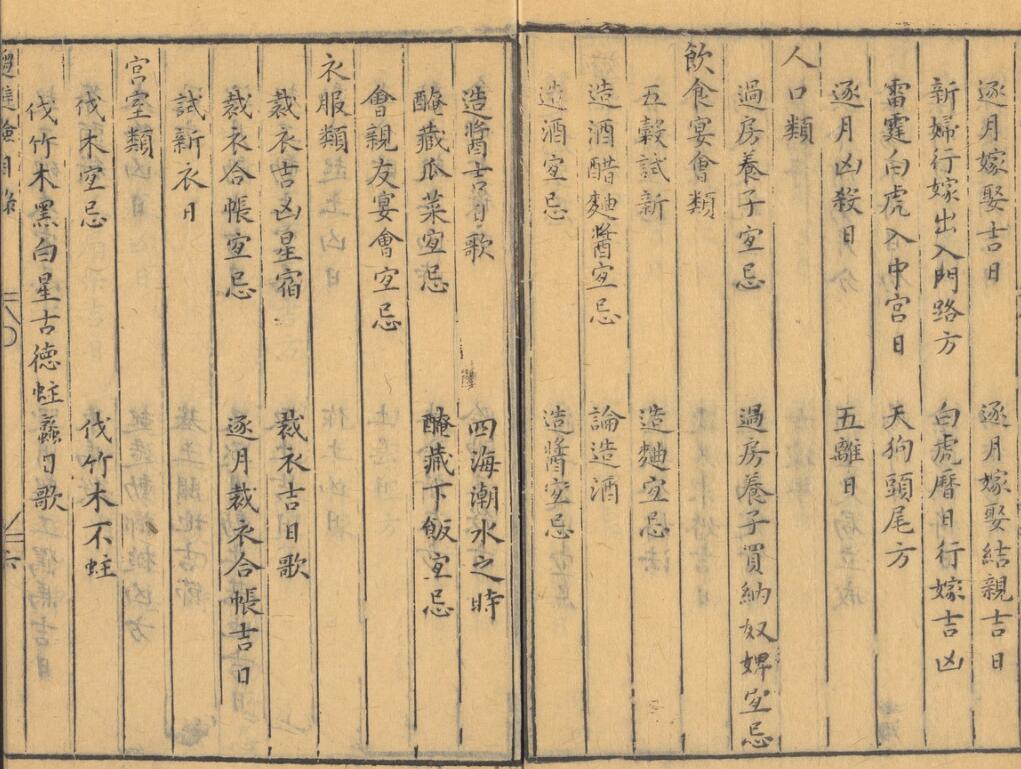 逐月嫁娶吉日　逐月嫁娶結親吉日
新婦行嫁出入門路方　白虎曆日行嫁吉凶
雷霆白虎入中宮日　天狗頭尾方
逐月凶殺日　五離日
人口類
過房養子宜忌　過房養子買納奴婢宜忌
飲食宴會類
五穀試新　造麯宜忌
造酒醋麯醬宜忌　論造酒
造酒宜忌　造醬宜忌
造醬吉日歌　四海潮水之時
醃藏瓜菜宜忌　醃藏下飯宜忌
會親友宴會宜忌
衣服類
裁衣吉凶星宿　裁衣吉日歌
裁衣合帳宜忌　逐月裁衣合帳吉日
試新衣日
宮室類
伐木宜忌　伐竹木不蛀
伐竹木黑白星古德蛀蟲日歌